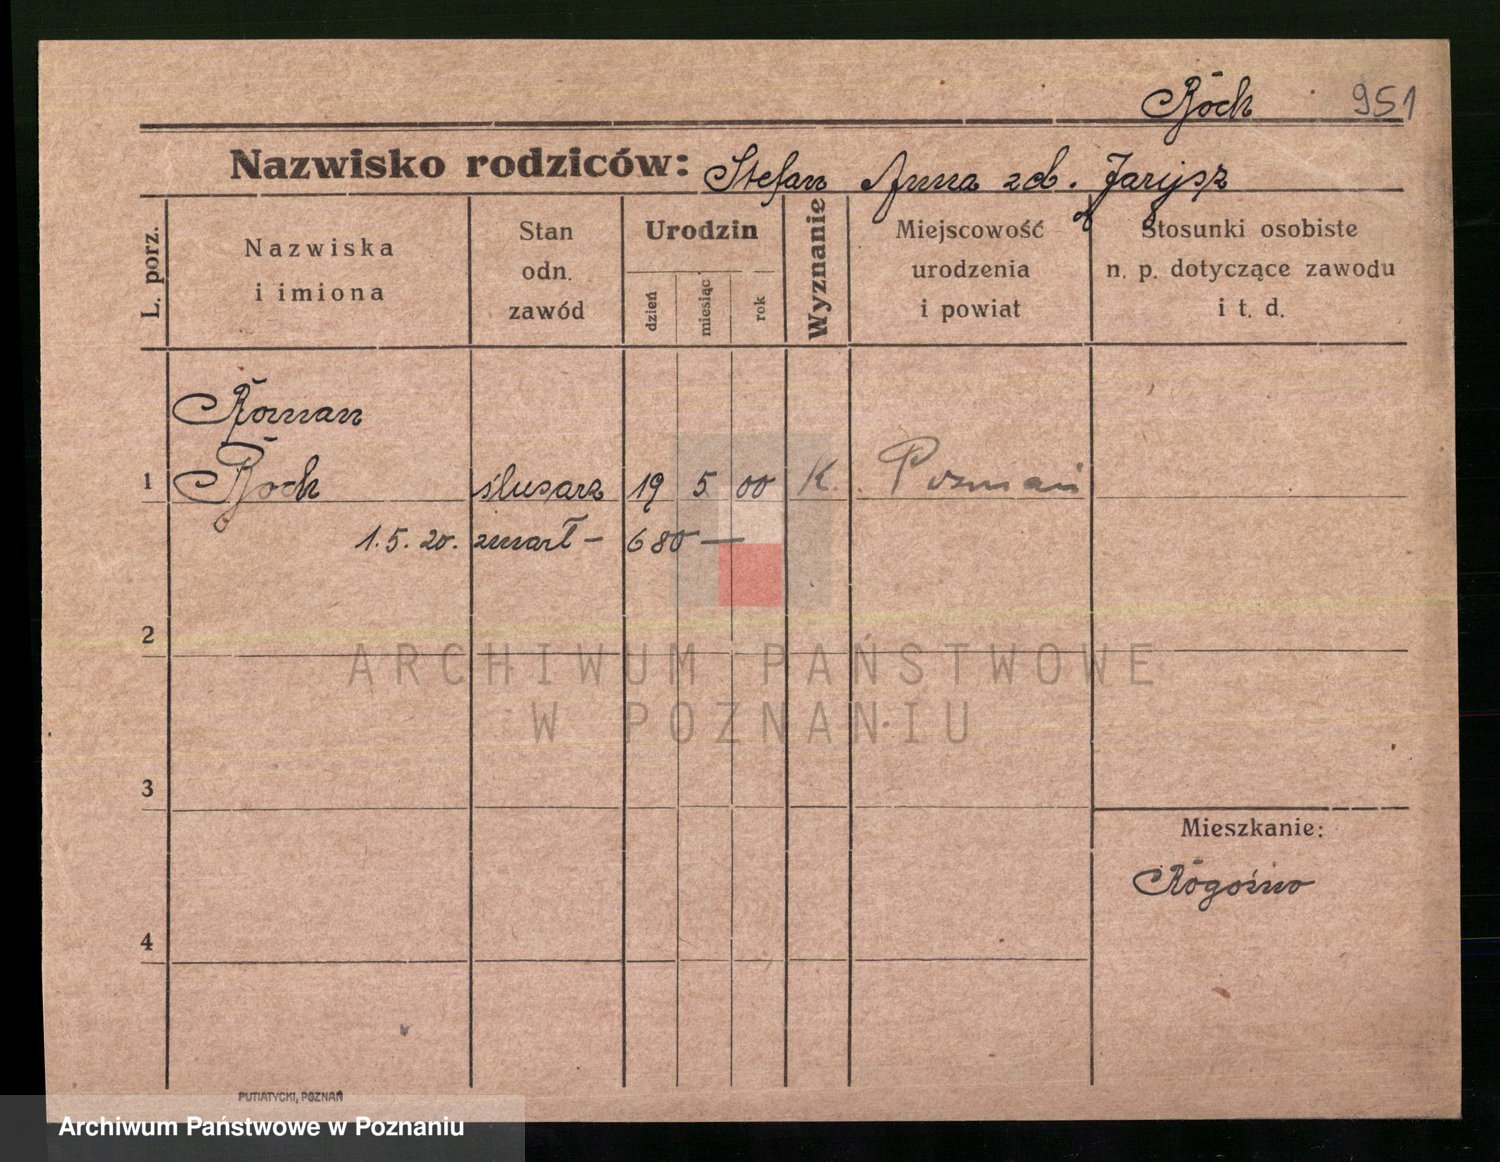 Roch 951
Nazwisko rodziców: Stefan Anna zd. Jarysz
L. porz.
Nazwiska
i imiona
Stan
odn.
zawód
Urodzin
dzień
miesiąc
rok
Wyznanie
Miejscowość
urodzenia
i powiat
Stosunki osobiste
n. p. dotyczące zawodu
i t. d.
Roman
1 Roch ślusarz 19 5 00 K. Poznań
1.5.20. zmarł – 680 —
2
ARCHIWUM PAŃSTWOWE
W POZNANIU
3
Mieszkanie:
Rogoźno
4
PUTIATYCKI, POZNAŃ
Archiwum Państwowe w Poznaniu